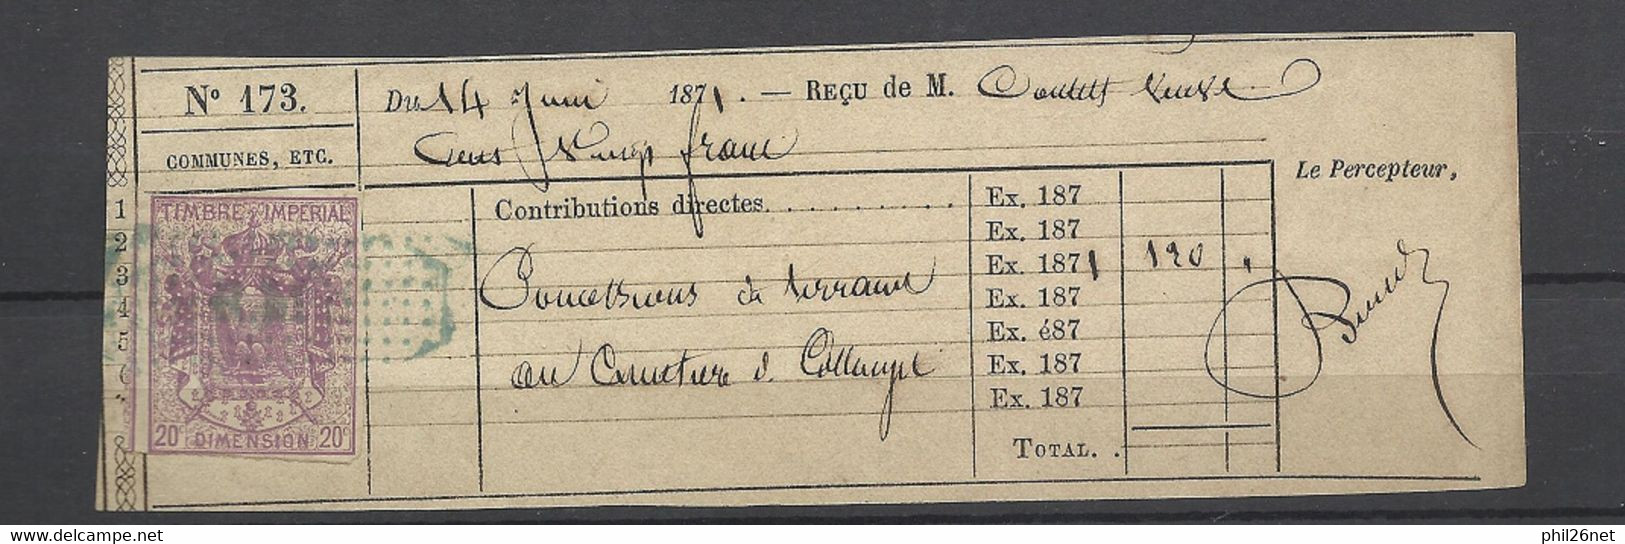 Nº 173.
COMMUNES, ETC.
Du 14 Juin 1871. — REÇU de M.
Cent Vingt franc
Le Percepteur,
TIMBRE IMPERIAL
20c DIMENSION 20c
1
2
3
4
5
8
Contributions directes. . . . . . . . . .
Concessions de terrain
au Cimetière d
Ex. 187
Ex. 187
Ex. 1871 120 "
Ex. 187
Ex. é87
Ex. 187
Ex. 187
TOTAL. .
phil26net